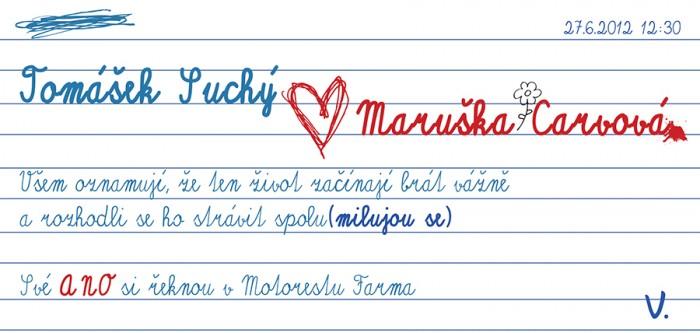 27.6.2012 12:30
Tomášek Suchý
Maruška Carvová
Všem oznamují, že ten život začínají brát vážně
a rozhodli se ho strávit spolu(milujou se)
Své ANO si řeknou v Motorestu Farma
V.